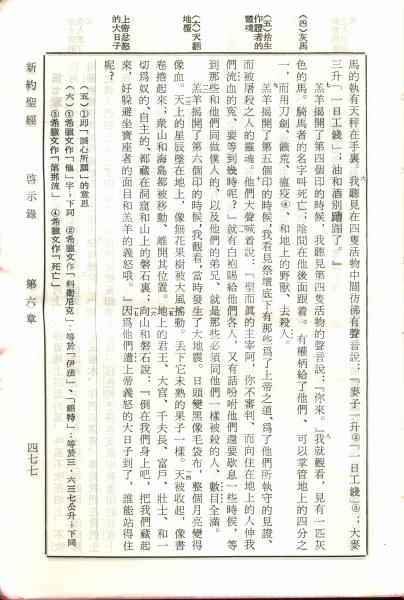 （四）灰馬
（五）捨生
作證者的
靈魂
（六）天翻
地覆
上帝忿怒
的大日子
馬的執有天秤在手裏。我聽見在四隻活物中間彷彿有聲音說：『麥子一升②「一日工錢」③；大麥
三升「一日工錢」；油和酒別蹧蹋了。』
羔羊揭開了第四個印的時候，我聽見第四隻活物的聲音說：『你來。』我就觀看，見有一匹灰
色的馬。騎馬者的名字叫死亡；陰間在他後面跟着。有權柄給了他們、可以掌管地上的四分之
一，而用刀劍、饑荒、瘟疫④、和地上的野獸、去殺人。
羔羊揭開了第五個印的時候，我看見祭壇底下有那些爲了上帝之道、爲了他們所執守的見證、
而被屠殺之人的靈魂。他們大聲喊着說：『聖而眞的主宰阿，你不審判、而向住在地上的人伸我
們流血的冤、要等到幾時呢？』就有白袍賜給他們各人，又有話吩咐他們還要歇息一些時候，等
到那些和他們同做僕人的、以及他們的弟兄、就是那些必須同他們一樣被殺的人、數目全滿。
羔羊揭開了第六個印的時候，我觀看，當時發生了大地震。日頭變黑像毛袋布，整個月亮變得
像血。天上的星辰墜在地上，像無花果樹被大風搖動、丟下它未熟的果子一樣。天被收起，像書
卷捲起來；衆山和海島都被移動、離開其位置。地上的君王、大官、千夫長、富戶、壯士、和一
切爲奴的、自主的、都藏在洞窟和山上的磐石裏；向山和磐石說：『倒在我們身上吧，把我們藏起
來，好躲避坐寶座者的面目和羔羊的義怒哦。』因爲他們遭上帝義怒的大日子到了，誰能站得住
呢？
（五）①卽「誠心所願」的意思
（六）①希臘文作「他」字；下同　②希臘文作「科衞尼克」：等於「伊法」、「錫特」：等於三·六三七公升；下同
③希臘文作「第那流」　④希臘文作「死亡」
新約聖經　啓示錄　第六章　四七七